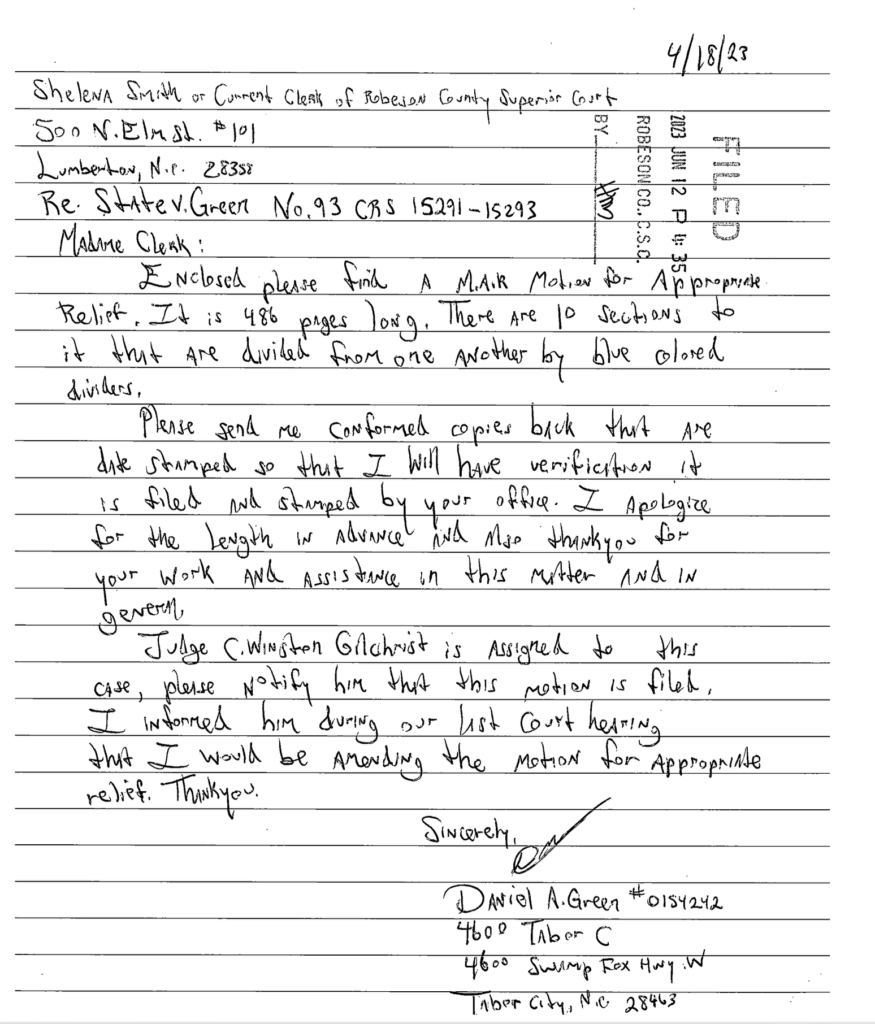 4/18/23
Shelena Smith or Current Clerk of Robeson County Superior Court
500 N. Elm St. #101
Lumberton, N.C. 28358
Re. State v. Green No. 93 CRS 15291-15293
FILED
2023 JUN 12 P 4: 35
ROBESON CO., C.S.C.
BY
Madame Clerk:
Enclosed please find A M.A.R Motion for Appropriate
Relief. It is 486 pages long. There are 10 sections to
it that are divided from one another by blue colored
dividers.
Please send me conformed copies back that are
date stamped so that I will have verification it
is filed and stamped by your office. I Apologize
for the length in advance and Also thankyou for
your work and assistance in this matter and in
general.
Judge C. Winston Gilchrist is assigned to this
case, please notify him that this motion is filed.
I informed him during our last court hearing
that I would be amending the motion for Appropriate
relief. Thankyou.
Sincerely,
Daniel A. Green #0154242
4600 Tabor C
4600 Swamp Fox Hwy. W
Tabor City, N.C 28463